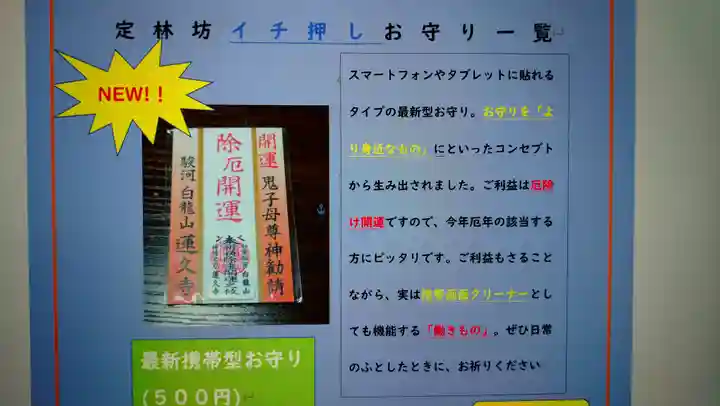 定林坊イチ押しお守り一覧
NEW!！
スマートフォンやタブレットに貼れる
タイプの最新型お守り。お守りを「よ
り身近なもの」にといったコンセプト
から生み出されました。ご利益は厄除
け開運ですので、今年厄年の該当する
方にピッタリです。ご利益もさること
ながら、実は携帯画面クリーナーとし
ても機能する「働きもの」。ぜひ日常
のふとしたときに、お祈りください
開運 鬼子母尊神勧請
除厄開運
駿河 白龍山 蓮久寺
白龍山
蓮久寺
最新携帯型お守り
(５００円)